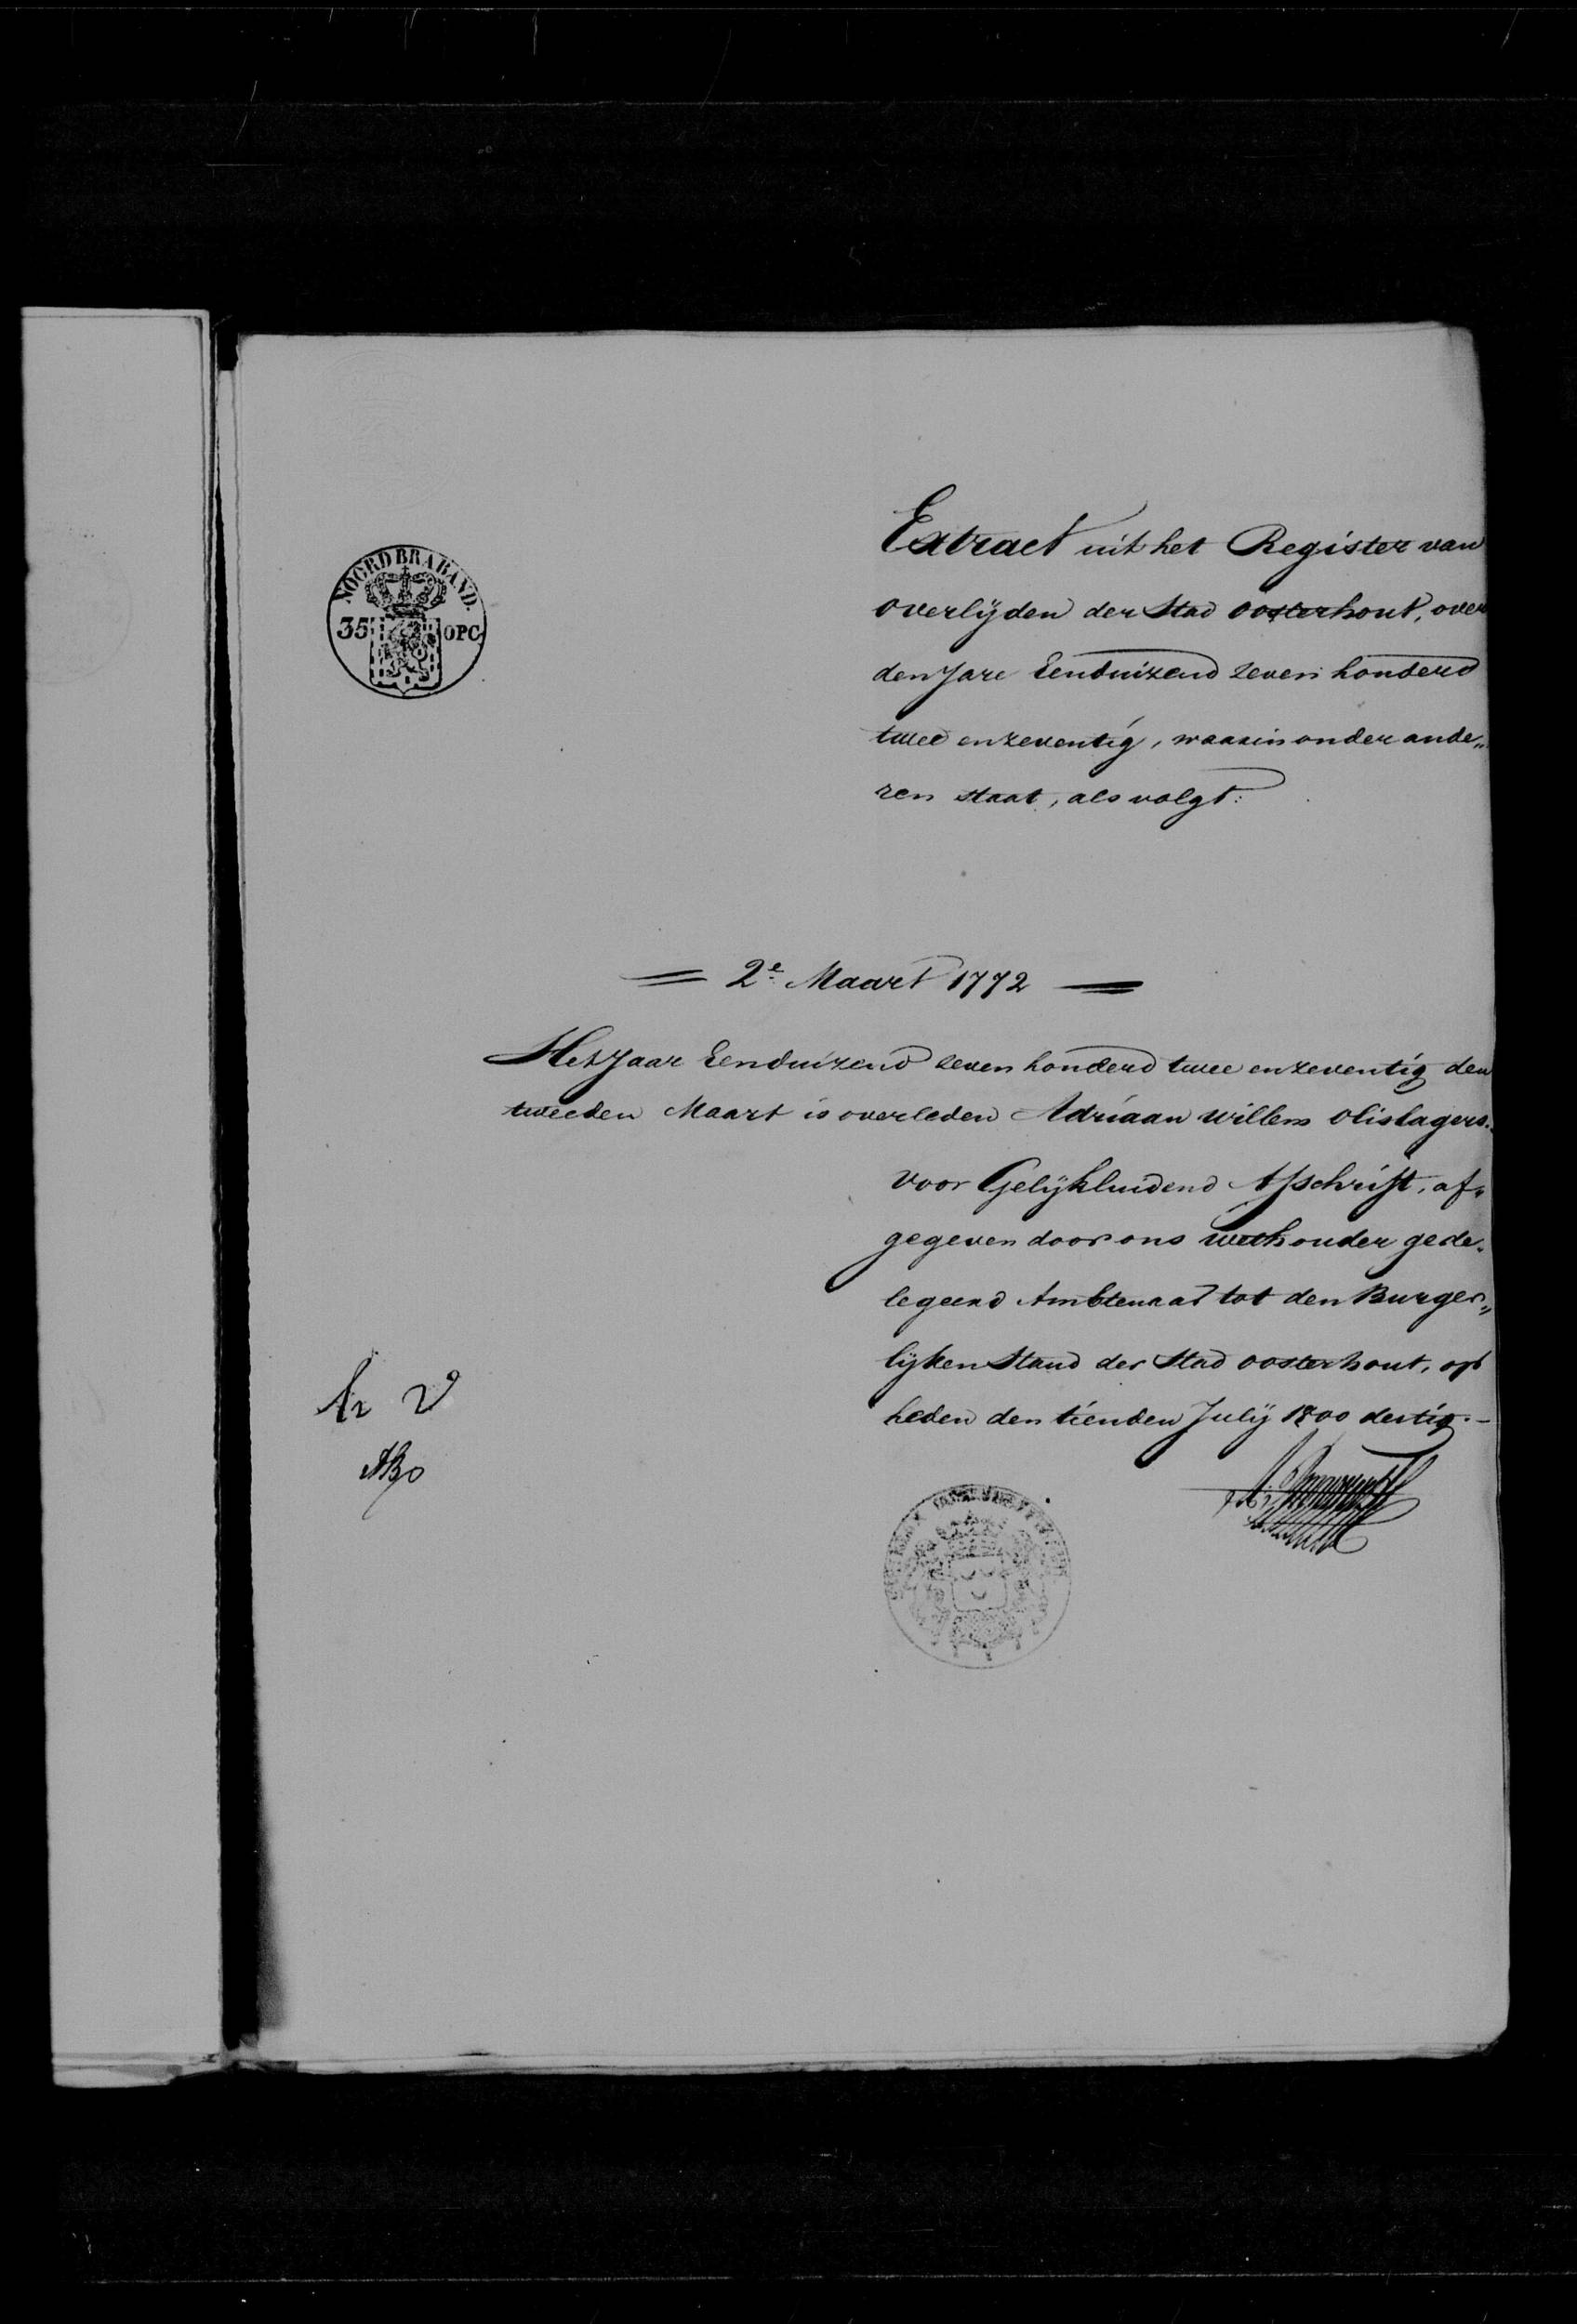 Extract uit het Register van
overlijden der Stad Oosterhout, over
den Jare Eenduizend Zeven honderd
twee en zeventig, waarin onder ande„
ren staat, als volgt:
NOORD BRABAND.
35 OPC
= 2e Maart 1772 =
Het Jaar Eenduizend zeven honderd twee en zeventig den
tweeden Maart is overleden Adriaan Willem Olislagers.
voor Gelijkluidend Afschrift, af„
gegeven door ons wethouder gede„
legeerd Ambtenaar tot den Burger„
lijken Stand der Stad Oosterhout, op
heden den tienden Julij 1800 dertig.-